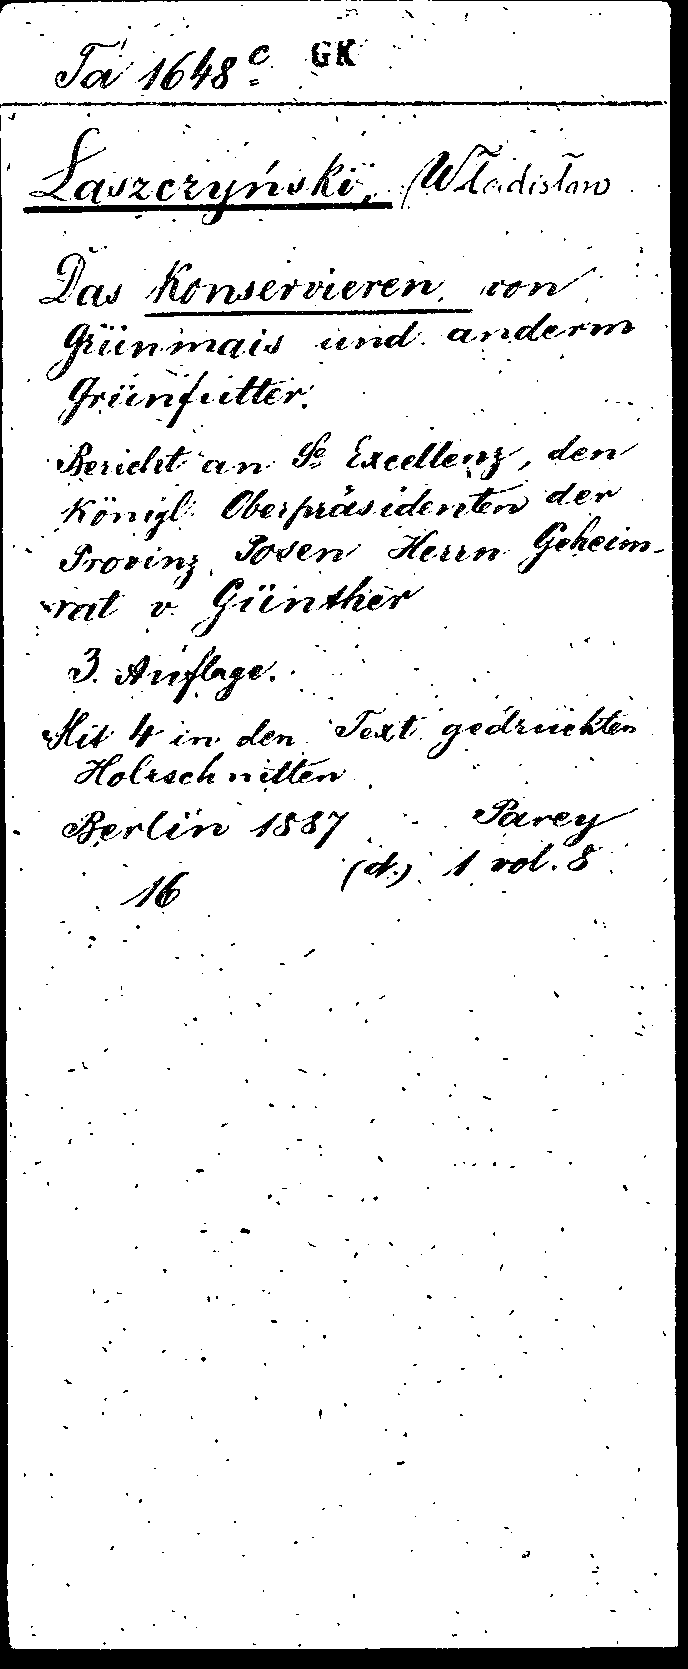 Ta 1648ᶜ GK
Laszczyński, (Wladislaw
Das Konservieren von
Grünmais und anderm
Grünfutter.
Bericht an Sᵉ Excellenz, den
Königl. Oberpräsidenten der
Provinz Posen Herrn Geheim-
rat v. Günther
3. Auflage.
Mit 4 in den Text gedruckten
Holzschnitten
Berlin 1887 Parey
(d.) 1 vol. 8
16